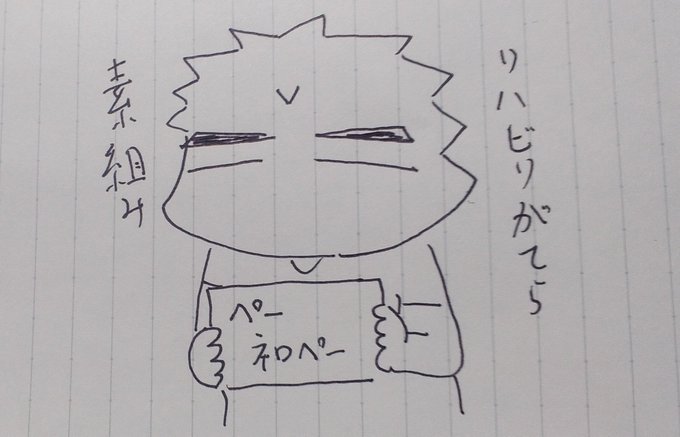 リハビリがてら
素組み
ペー
ネロペー